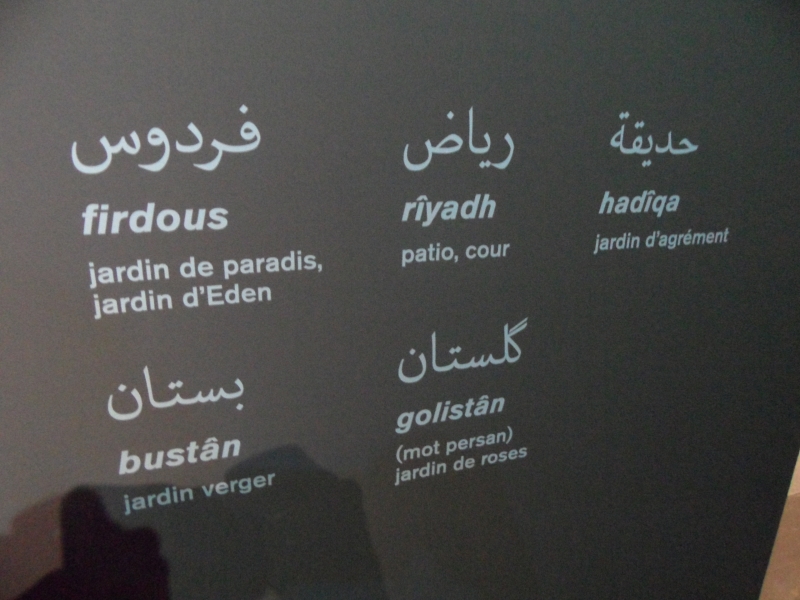 فردوس
firdous
jardin de paradis,
jardin d'Eden
رياض
rîyadh
patio, cour
حديقة
hadîqa
jardin d'agrément
بستان
bustân
jardin verger
گلستان
golistân
(mot persan)
jardin de roses